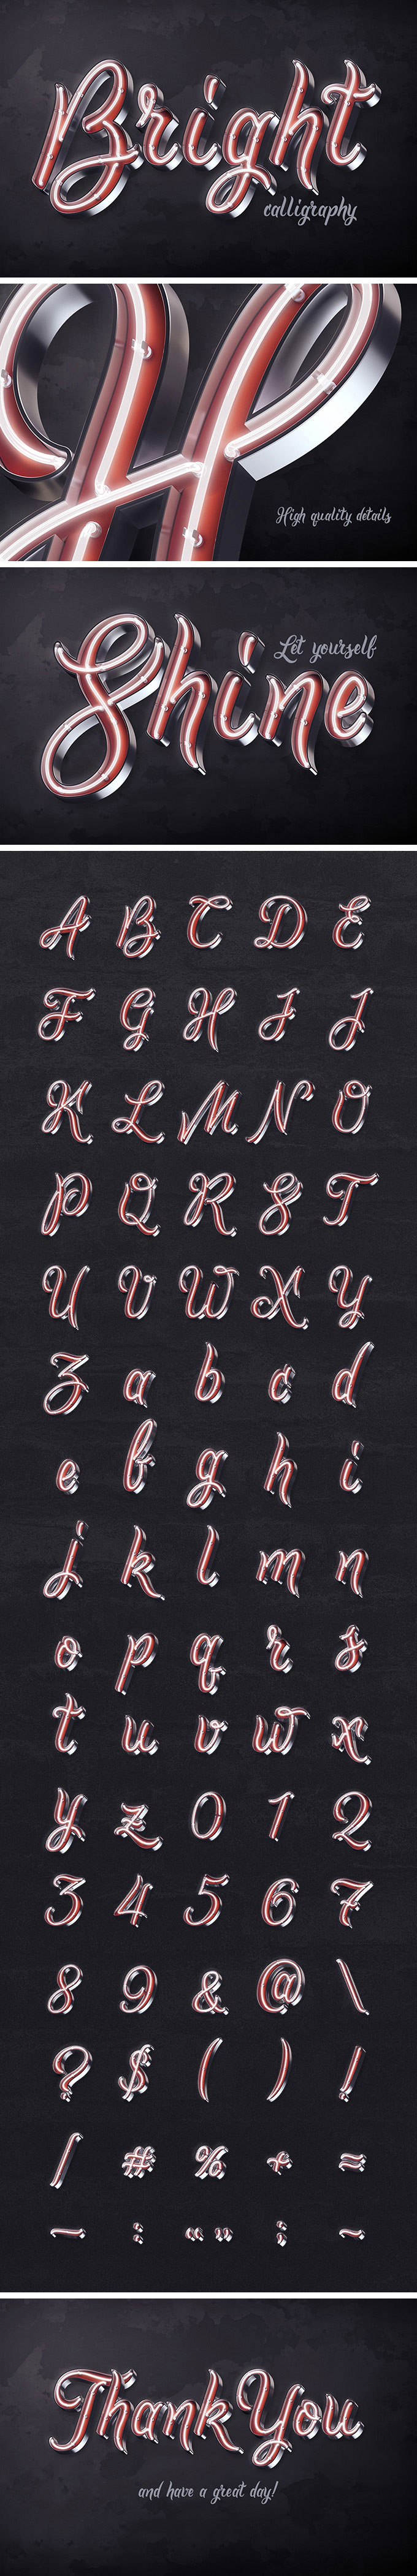 Bright
calligraphy
High quality details
Let yourself
Shine
A B C D E
F G H I J
K L M N O
P Q R S T
U V W X Y
Z a b c d
e f g h i
j k l m n
o p q r s
t u v w x
y z 0 1 2
3 4 5 6 7
8 9 & @ \
? $ ( ) !
/ # % + =
- : “ ” ; ~
Thank You
and have a great day!